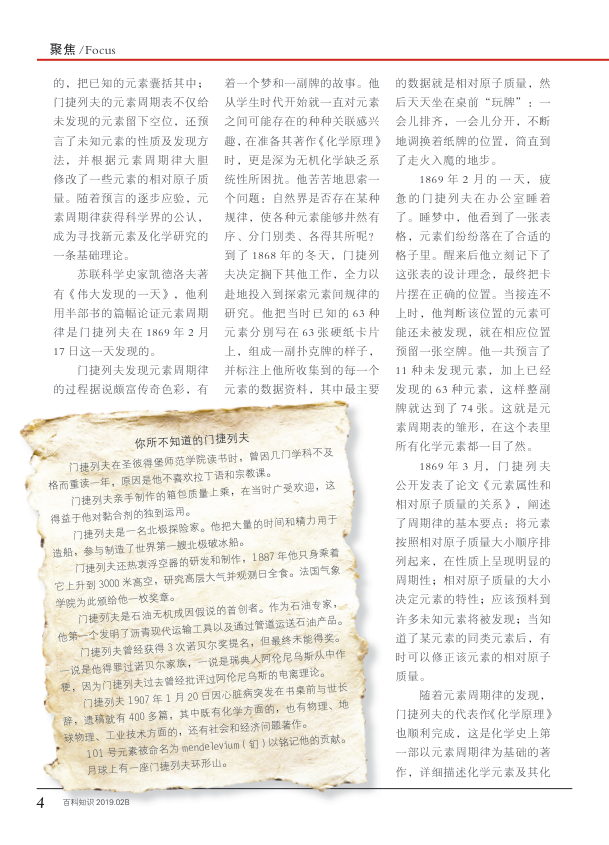 聚焦 /Focus
的，把已知的元素囊括其中；
门捷列夫的元素周期表不仅给
未发现的元素留下空位，还预
言了未知元素的性质及发现方
法，并根据元素周期律大胆
修改了一些元素的相对原子质
量。随着预言的逐步应验，元
素周期律获得科学界的公认，
成为寻找新元素及化学研究的
一条基础理论。
苏联科学史家凯德洛夫著
有《伟大发现的一天》，他利
用半部书的篇幅论证元素周期
律是门捷列夫在 1869 年 2 月
17 日这一天发现的。
门捷列夫发现元素周期律
的过程据说颇富传奇色彩，有
着一个梦和一副牌的故事。他
从学生时代开始就一直对元素
之间可能存在的种种关联感兴
趣，在准备其著作《化学原理》
时，更是深为无机化学缺乏系
统性所困扰。他苦苦地思索一
个问题：自然界是否存在某种
规律，使各种元素能够井然有
序、分门别类、各得其所呢？
到了 1868 年的冬天，门捷列
夫决定搁下其他工作，全力以
赴地投入到探索元素间规律的
研究。他把当时已知的 63 种
元素分别写在 63 张硬纸卡片
上，组成一副扑克牌的样子，
并标注上他所收集到的每一个
元素的数据资料，其中最主要
的数据就是相对原子质量，然
后天天坐在桌前“玩牌”：一
会儿排齐，一会儿分开，不断
地调换着纸牌的位置，简直到
了走火入魔的地步。
1869 年 2 月的一天，疲
惫的门捷列夫在办公室睡着
了。睡梦中，他看到了一张表
格，元素们纷纷落在了合适的
格子里。醒来后他立刻记下了
这张表的设计理念，最终把卡
片摆在正确的位置。当接连不
上时，他判断该位置的元素可
能还未被发现，就在相应位置
预留一张空牌。他一共预言了
11 种未发现元素，加上已经
发现的 63 种元素，这样整副
牌就达到了 74 张。这就是元
素周期表的雏形，在这个表里
所有化学元素都一目了然。
1869 年 3 月，门捷列夫
公开发表了论文《元素属性和
相对原子质量的关系》，阐述
了周期律的基本要点：将元素
按照相对原子质量大小顺序排
列起来，在性质上呈现明显的
周期性；相对原子质量的大小
决定元素的特性；应该预料到
许多未知元素将被发现；当知
道了某元素的同类元素后，有
时可以修正该元素的相对原子
质量。
随着元素周期律的发现，
门捷列夫的代表作《化学原理》
也顺利完成，这是化学史上第
一部以元素周期律为基础的著
作，详细描述化学元素及其化
你所不知道的门捷列夫
门捷列夫在圣彼得堡师范学院读书时，曾因几门学科不及
格而重读一年，原因是他不喜欢拉丁语和宗教课。
门捷列夫亲手制作的箱包质量上乘，在当时广受欢迎，这
得益于他对黏合剂的独到运用。
门捷列夫是一名北极探险家。他把大量的时间和精力用于
造船，参与制造了世界第一艘北极破冰船。
门捷列夫还热衷浮空器的研发和制作，1887 年他只身乘着
它上升到 3000 米高空，研究高层大气并观测日全食。法国气象
学院为此颁给他一枚奖章。
门捷列夫是石油无机成因假说的首创者。作为石油专家，
他第一个发明了沥青现代运输工具以及通过管道运送石油产品。
门捷列夫曾经获得 3 次诺贝尔奖提名，但最终未能得奖。
一说是他得罪过诺贝尔家族，一说是瑞典人阿伦尼乌斯从中作
梗，因为门捷列夫过去曾经批评过阿伦尼乌斯的电离理论。
门捷列夫 1907 年 1 月 20 日因心脏病突发在书桌前与世长
辞，遗稿就有 400 多篇，其中既有化学方面的，也有物理、地
球物理、工业技术方面的，还有社会和经济问题著作。
101 号元素被命名为 mendelevium（钔）以铭记他的贡献。
月球上有一座门捷列夫环形山。
4 百科知识 2019.02B